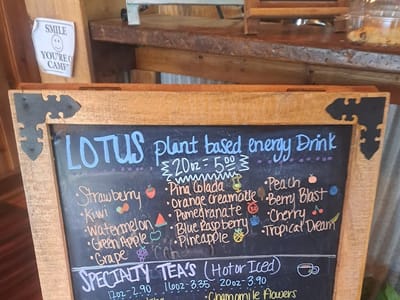 SMILE
YOU'RE ON
CAMERA
LOTUS plant based energy Drink
20oz = 5.00
Strawberry
Kiwi
Watermelon
Green Apple
Grape
Pina Colada
Orange creamsicle
Pomegranate
Blue Raspberry
Pineapple
Peach
Berry Blast
Cherry
Tropical Dream
SPECIALTY TEA'S (Hot or Iced)
12oz - 2.90 16oz - 3.35 20oz - 3.90
Chamomile Flowers